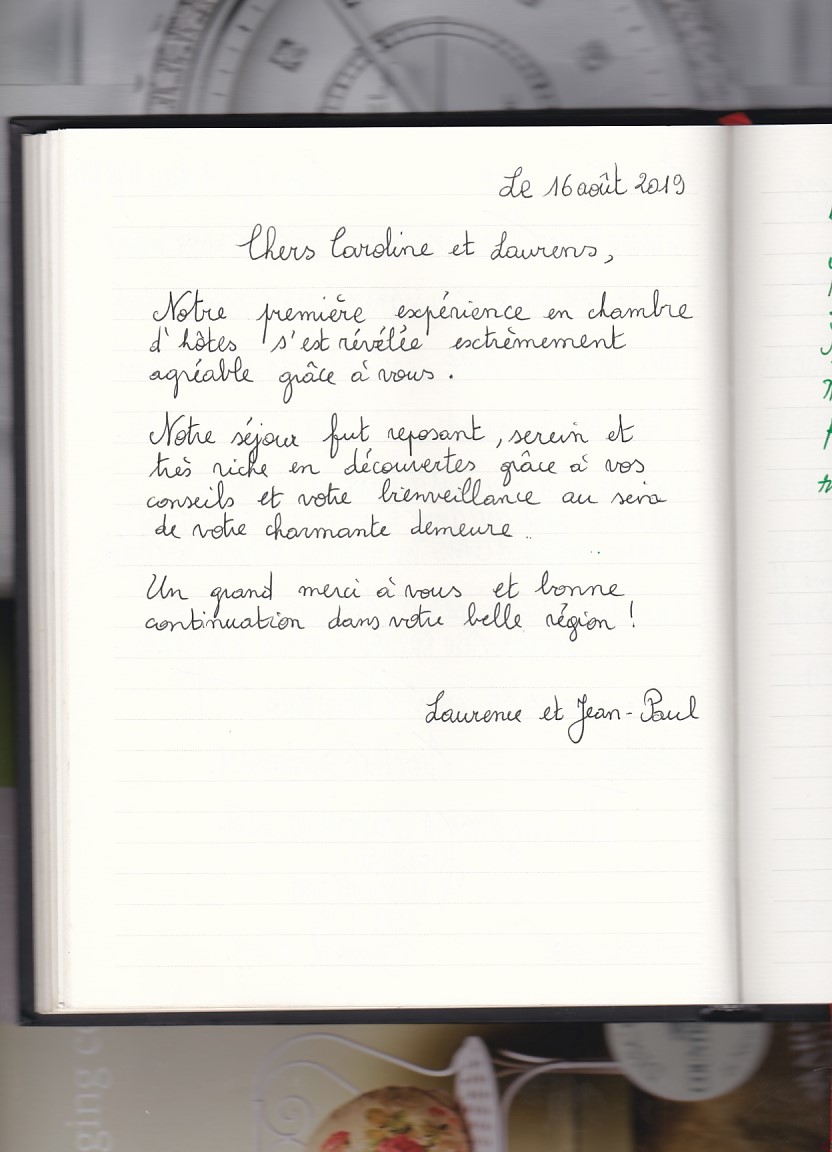 Le 16 août 2019
Chers Caroline et Laurens,
Notre première expérience en chambre
d'hôtes s'est révélée extrèmement
agréable grâce à vous.
Notre séjour fut reposant, serein et
très riche en découvertes grâce à vos
conseils et votre bienveillance au sein
de votre charmante demeure.
Un grand merci à vous et bonne
continuation dans votre belle région !
Laurence et Jean-Paul
ging